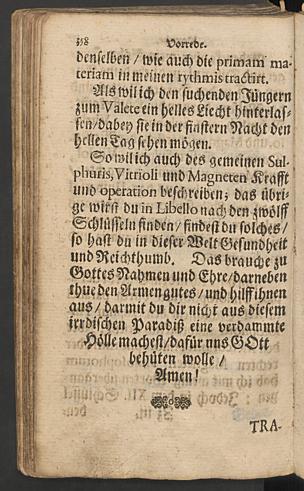 358 Vorrede.
denselben / wie auch die primam ma-
teriam in meinen rythmis tractirt.
Als wil ich den suchenden Jüngern
zum Valete ein helles Liecht hinterlas-
sen / dabey sie in der finstern Nacht den
hellen Tag sehen mögen.
So wil ich auch des gemeinen Sul-
phuris, Vitrioli und Magneten Krafft
und operation beschreiben; das übri-
ge wirst du in Libello nach den zwölff
Schlüsseln finden / findest du solches /
so hast du in dieser Welt Gesundheit
und Reichthumb. Das brauche zu
Gottes Nahmen und Ehre / darneben
thue den Armen gutes / und hilff ihnen
aus / darmit du dir nicht aus diesem
irrdischen Paradiß eine verdammte
Hölle machest / dafür uns GOtt
behüten wolle /
Amen!
TRA-